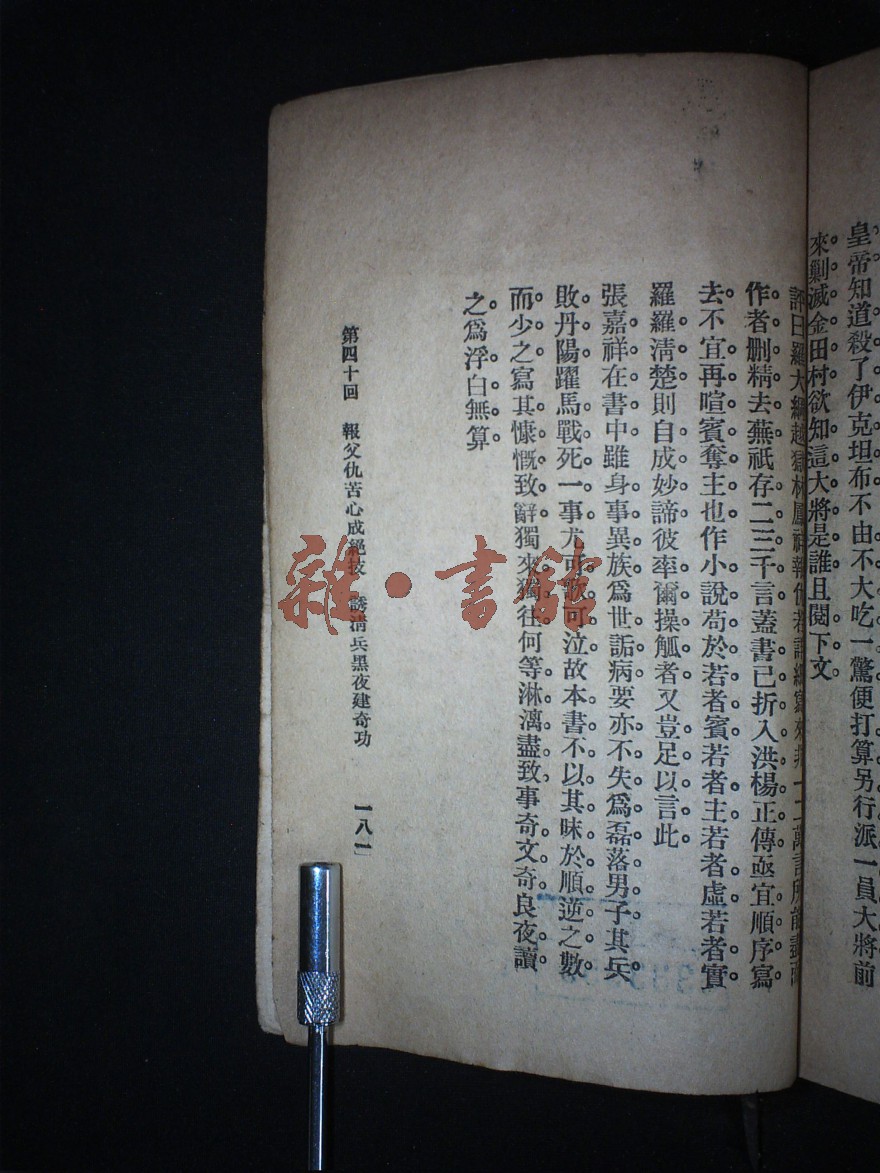 皇帝知道殺了伊克坦布不由不大吃一驚便打算另行派一員大將前
來剿滅金田村欲知這大將是誰且閱下文。
評曰羅大綱越獄林鳳祥報仇若詳細寫來非一二萬言所能盡
作者刪精去蕪祇存二三千言蓋書已折入洪楊正傳亟宜順序寫
去。不宜再喧賓奪主也。作小說苟於若者賓若者主若者虛若者實
羅羅清楚則自成妙諦彼率爾操觚者又豈足以言此
張嘉祥在書中雖身事異族爲世詬病要亦不失爲磊落男子其兵
敗丹陽躍馬戰死一事尤可歌可泣故本書不以其昧於順逆之數
而少之寫其慷慨致辭獨來獨往何等淋漓盡致事奇文奇良夜讀
之爲浮白無算
第四十回 報父仇苦心成絕技 誘清兵黑夜建奇功
一八一
雜·書館